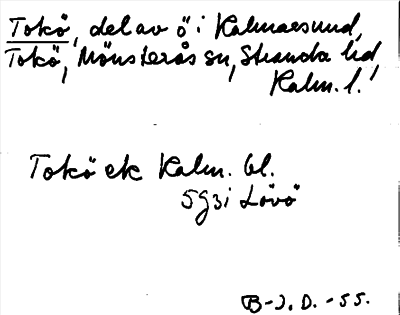 Tokö, del av ö i Kalmarsund,
Tokö, Mönsterås sn, Stranda hd
Kalm. l.
Tokö ek Kalm. bl.
5g3i Lövö
B-J. D. -55.